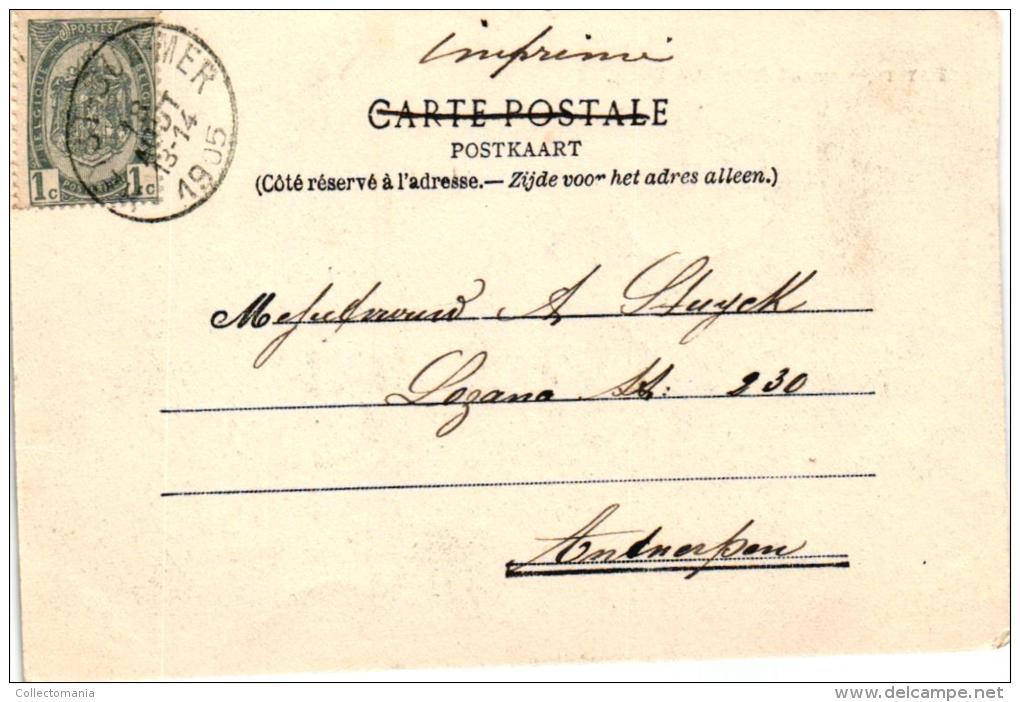 imprimé
CARTE POSTALE
POSTKAART
(Côté réservé à l'adresse.— Zijde voor het adres alleen.)
POSTES
BELGIQUE
1c 1c
MER
18
AOUT
13-14
1905
A Stuyck
Lozana St: 230
Antwerpen
Collectomania
delcampe.net